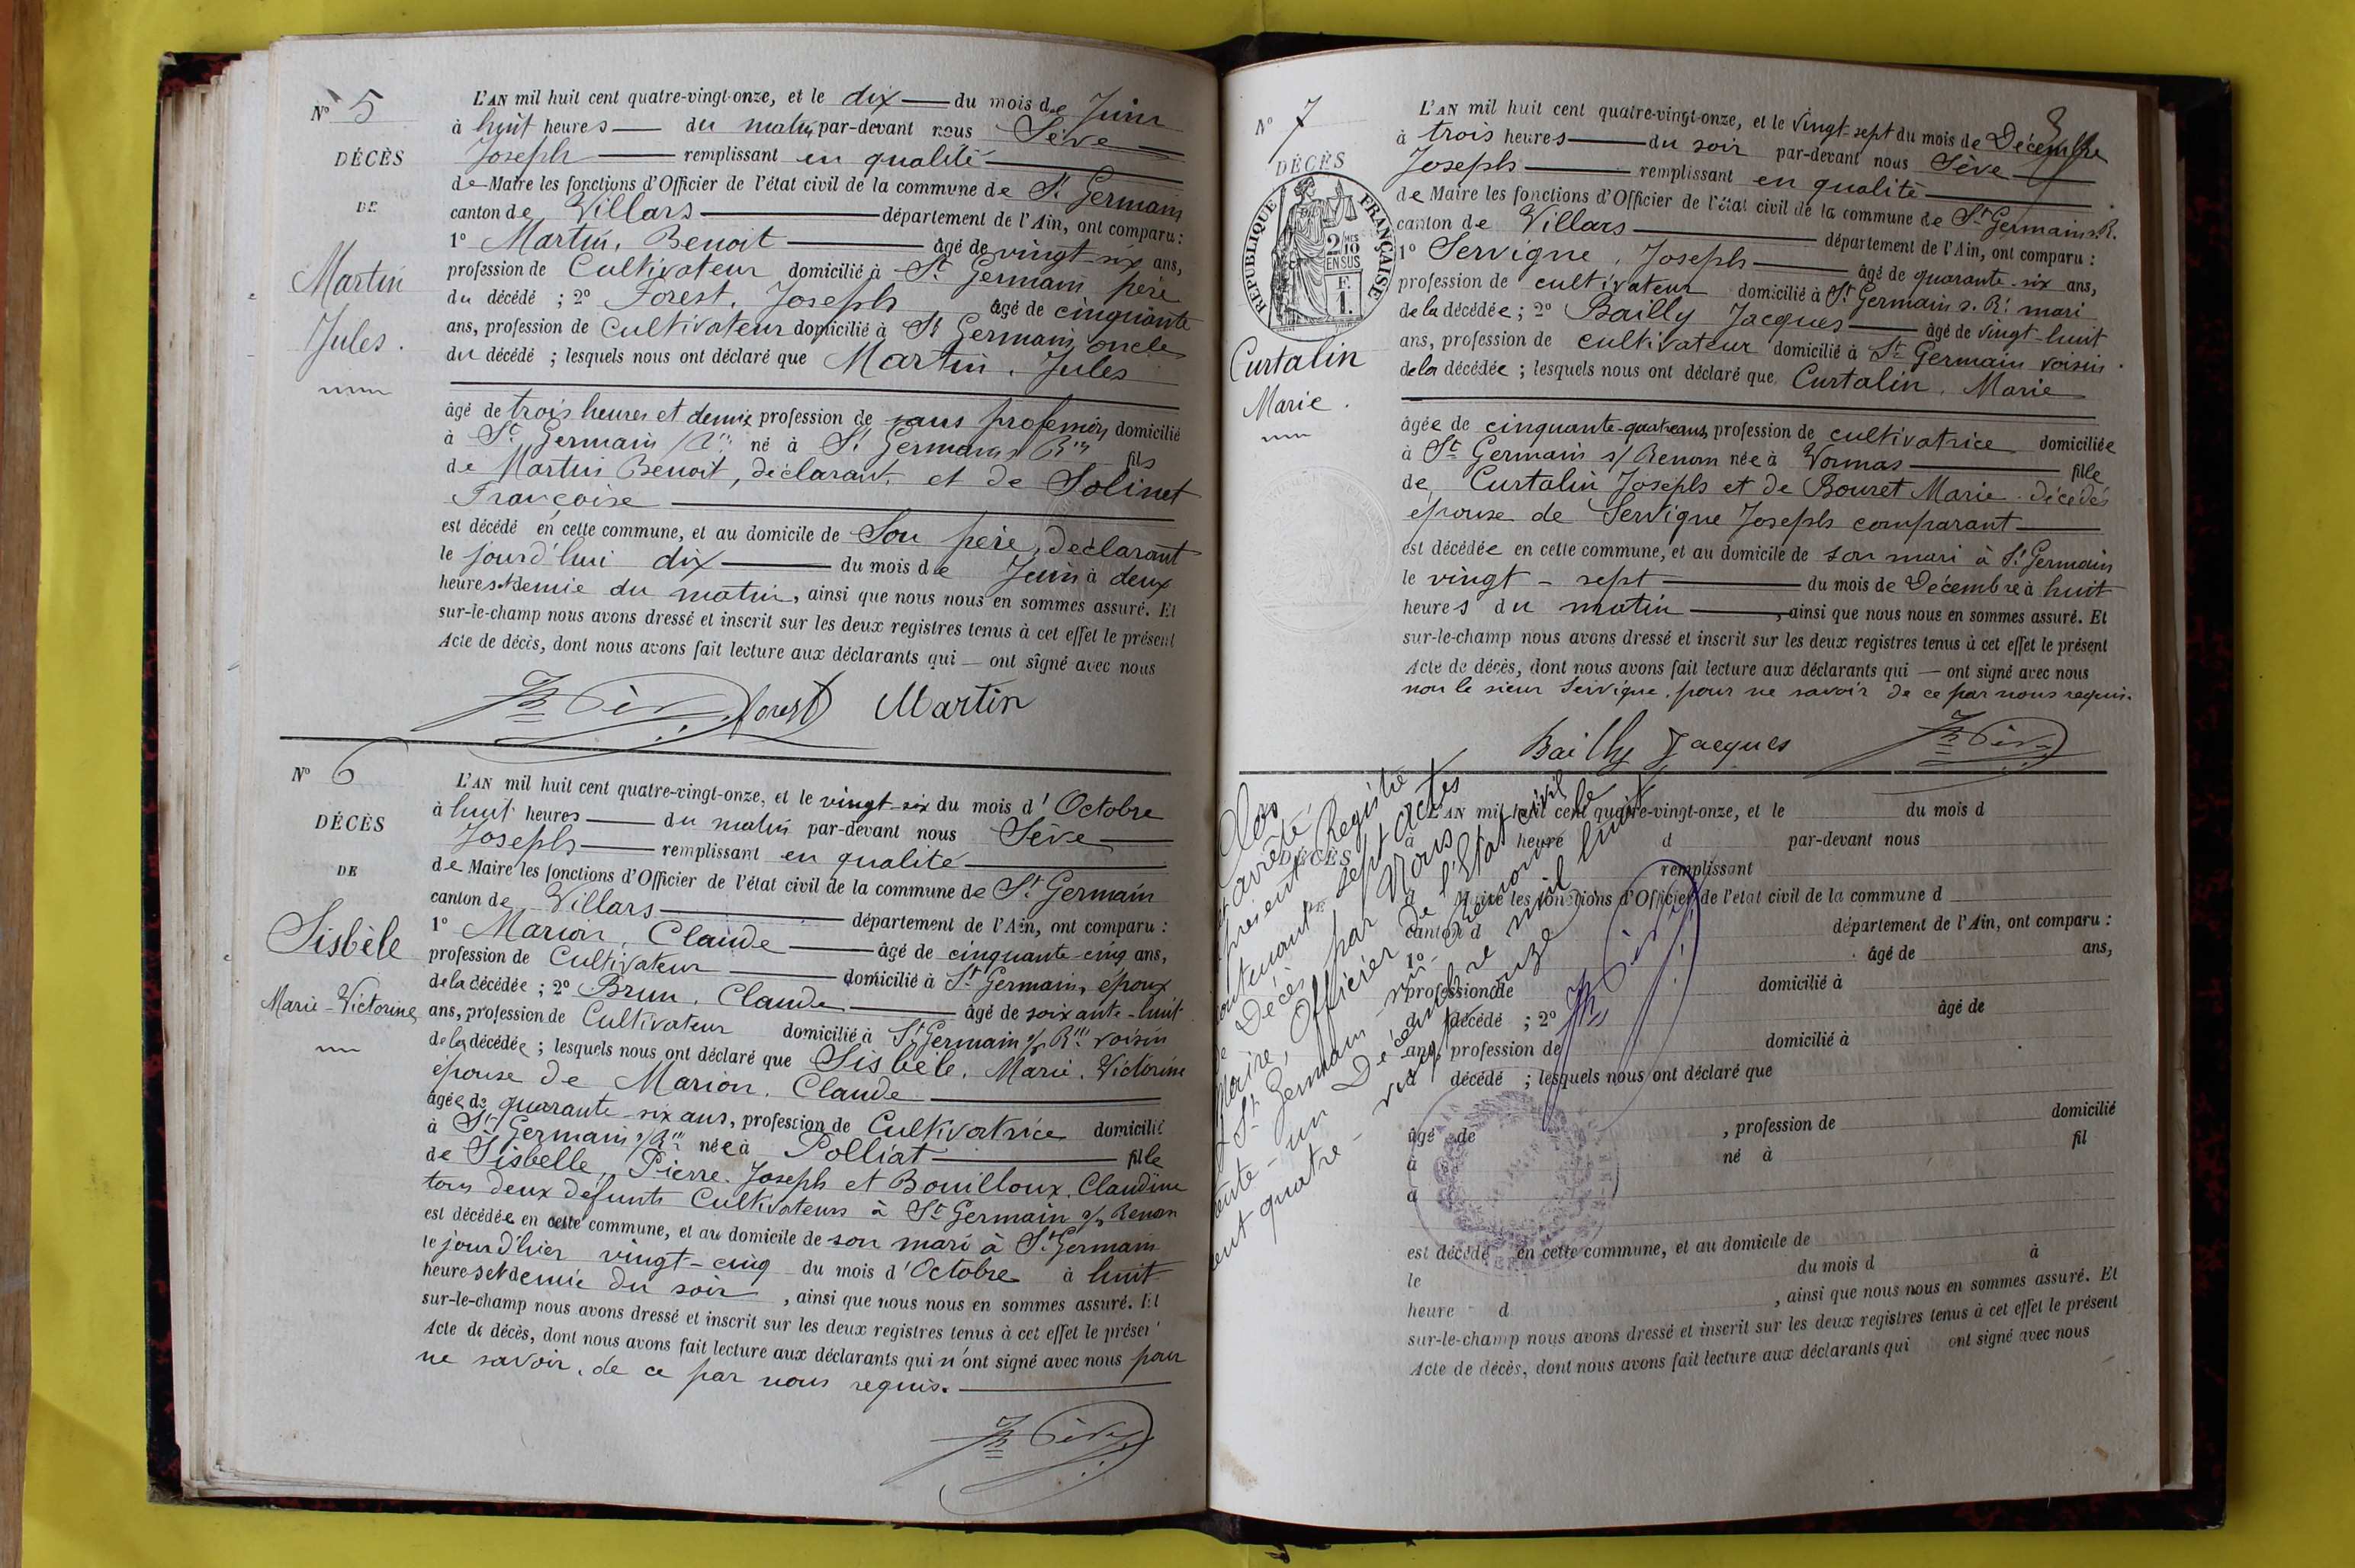 N° 5
DÉCÈS
DE
Martin
Jules.
L'AN mil huit cent quatre-vingt-onze, et le dix du mois de Juin
à huit heures du matin par-devant nous Sève
Joseph remplissant en qualité
de Maire les fonctions d'Officier de l'état civil de la commune de St Germain
canton de Villars département de l'Ain, ont comparu :
1° Martin, Benoit âgé de vingt-six ans,
profession de Cultivateur domicilié à St Germain père
du décédé ; 2° Forest, Joseph âgé de cinquante
ans, profession de Cultivateur domicilié à St Germain, oncle
du décédé ; lesquels nous ont déclaré que Martin, Jules
âgé de trois heures et demie profession de sans profession domicilié
à St Germain s/Ron né à St Germain s/Ron fils
de Martin Benoit, déclarant, et de Solinet
Françoise
est décédé en cette commune, et au domicile de Son père, déclarant
le jourd'hui dix du mois de Juin à deux
heures et demie du matin, ainsi que nous nous en sommes assuré. Et
sur-le-champ nous avons dressé et inscrit sur les deux registres tenus à cet effet le présent
Acte de décès, dont nous avons fait lecture aux déclarants qui — ont signé avec nous
Jh Sève Forest Martin
N° 6
DÉCÈS
DE
Sisbèle
Marie-Victorine
L'AN mil huit cent quatre-vingt-onze, et le vingt-six du mois d'Octobre
à huit heures du matin par-devant nous Sève
Joseph remplissant en qualité
de Maire les fonctions d'Officier de l'état civil de la commune de St Germain
canton de Villars département de l'Ain, ont comparu :
1° Marion, Claude âgé de cinquante-cinq ans,
profession de Cultivateur domicilié à St Germain, époux
de la décédée ; 2° Brun, Claude âgé de soixante-huit
ans, profession de Cultivateur domicilié à St Germain s/Ron voisin
de la décédée ; lesquels nous ont déclaré que Sisbèle, Marie, Victorine
épouse de Marion, Claude
âgée de quarante-six ans, profession de Cultivatrice domicilié
à St Germain s/Ron née à Polliat fille
de Sisbelle, Pierre-Joseph et Bouilloux, Claudine
tous deux défunts Cultivateurs à St Germain s/ Renon
est décédée en cette commune, et au domicile de son mari à St Germain
le jour d'hier vingt-cinq du mois d'Octobre à huit
heures et demie du soir, ainsi que nous nous en sommes assuré. Et
sur-le-champ nous avons dressé et inscrit sur les deux registres tenus à cet effet le présen
Acte de décès, dont nous avons fait lecture aux déclarants qui n'ont signé avec nous pour
ne savoir, de ce par nous requis.
Jh Sève
8
N° 7
DÉCÈS
RÉPUBLIQUE FRANÇAISE
2/10 MES EN SUS
F. 1.
Curtalin
Marie.
L'AN mil huit cent quatre-vingt-onze, et le vingt-sept du mois de Décembre
à trois heures du soir par-devant nous Sève
Joseph remplissant en qualité
de Maire les fonctions d'Officier de l'état civil de la commune de St Germain s. R.
canton de Villars département de l'Ain, ont comparu :
1° Servigne, Joseph âgé de quarante-six ans,
profession de cultivateur domicilié à St Germain s. R. mari
de la décédée ; 2° Bailly Jacques âgé de vingt-huit
ans, profession de cultivateur domicilié à St Germain voisin
de la décédée ; lesquels nous ont déclaré que Curtalin, Marie
âgée de cinquante-quatre ans, profession de cultivatrice domiciliée
à St Germain s/ Renom née à Vonnas fille
de Curtalin Joseph et de Bouret Marie décédés
épouse de Servigne Joseph comparant
est décédée en cette commune, et au domicile de son mari à St Germain
le vingt-sept du mois de Décembre à huit
heures du matin, ainsi que nous nous en sommes assuré. Et
sur-le-champ nous avons dressé et inscrit sur les deux registres tenus à cet effet le présent
Acte de décès, dont nous avons fait lecture aux déclarants qui — ont signé avec nous
non le sieur Servigne, pour ne savoir de ce par nous requis.
Bailly Jacques Jh Sève
Clos
et arrêté
présent Registre
contenant sept actes
de Décès par Nous
Maire, Officier de l'Etat civil
à St Germain-sur-Renom le
trente-un Décembre mil huit
cent quatre-vingt-onze
Jh Sève
DÉCÈS
L'AN mil huit cent quatre-vingt-onze, et le du mois d
à heure d par-devant nous
remplissant
d Maire les fonctions d'Officier de l'état civil de la commune d
canton d département de l'Ain, ont comparu :
1° âgé de ans,
profession de domicilié à
d décédé ; 2° âgé de
ans, profession de domicilié à
d décédé ; lesquels nous ont déclaré que
âgé de , profession de domicilié
à né à fil
d
est décédé en cette commune, et au domicile de
le du mois d à
heure d , ainsi que nous nous en sommes assuré. Et
sur-le-champ nous avons dressé et inscrit sur les deux registres tenus à cet effet le présent
Acte de décès, dont nous avons fait lecture aux déclarants qui ont signé avec nous